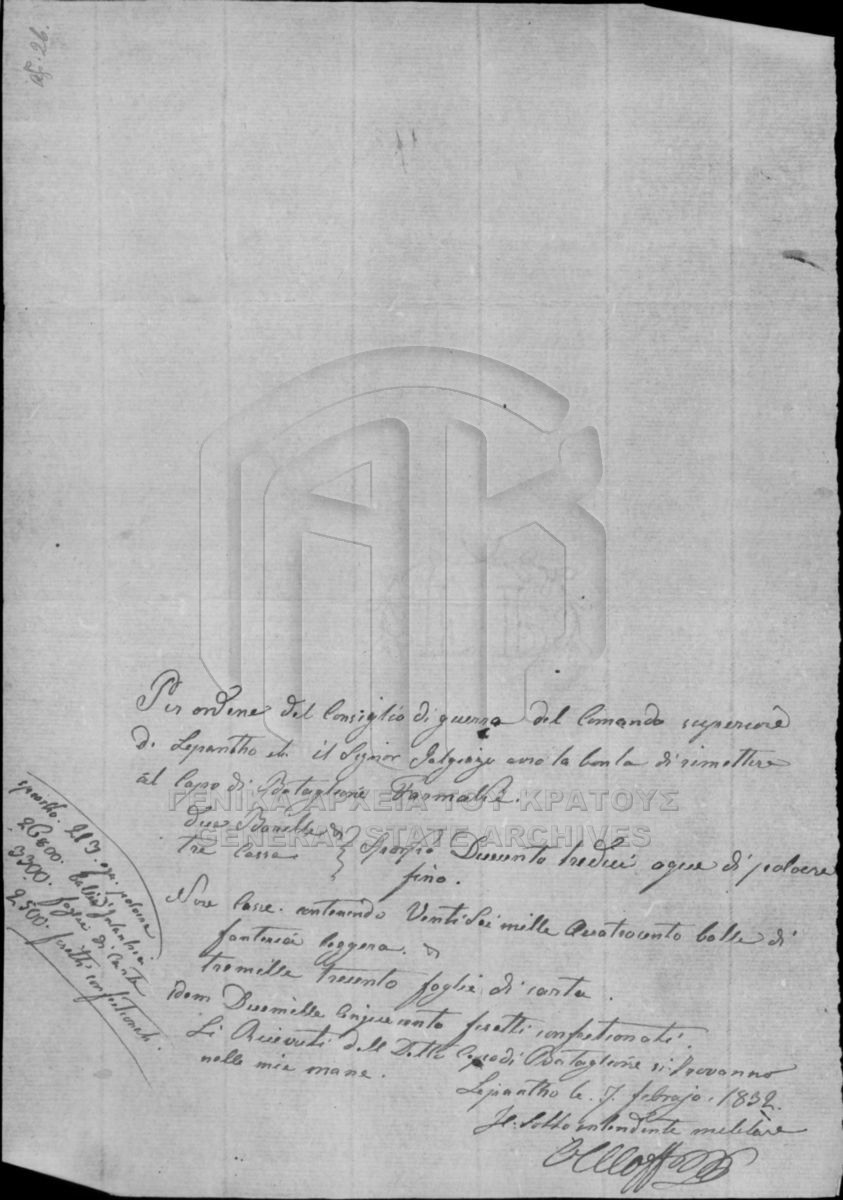 26.
Per ordene del Consiglio di guerra del Comando superiore
di Lepantho il Signor avrà la bonta di rimettere
al Capo di Bataglione
ΓΕΝΙΚΑ ΑΡΧΕΙΑ ΤΟΥ ΚΡΑΤΟΥΣ
GENERAL STATE ARCHIVES
due Barille
tre Cassa Ducento tredici oque di polvere
fino.
Nove Casse contenendo Venti Sei mille Quatrocento balle di
fanteria leggera.
tremille trecento foglie di carta.
Idem Duemille Cinquecento confetionati.
Li Ricevuti dell Detto Capo di Bataglione si trovanno
nelle mie mane.
Lepantho le 7 febrajo 1832.
Il Sotto intendente militare
213. oque polvere
26400. balle d'fantria
3300. foglie di carte
2500. confetionati.